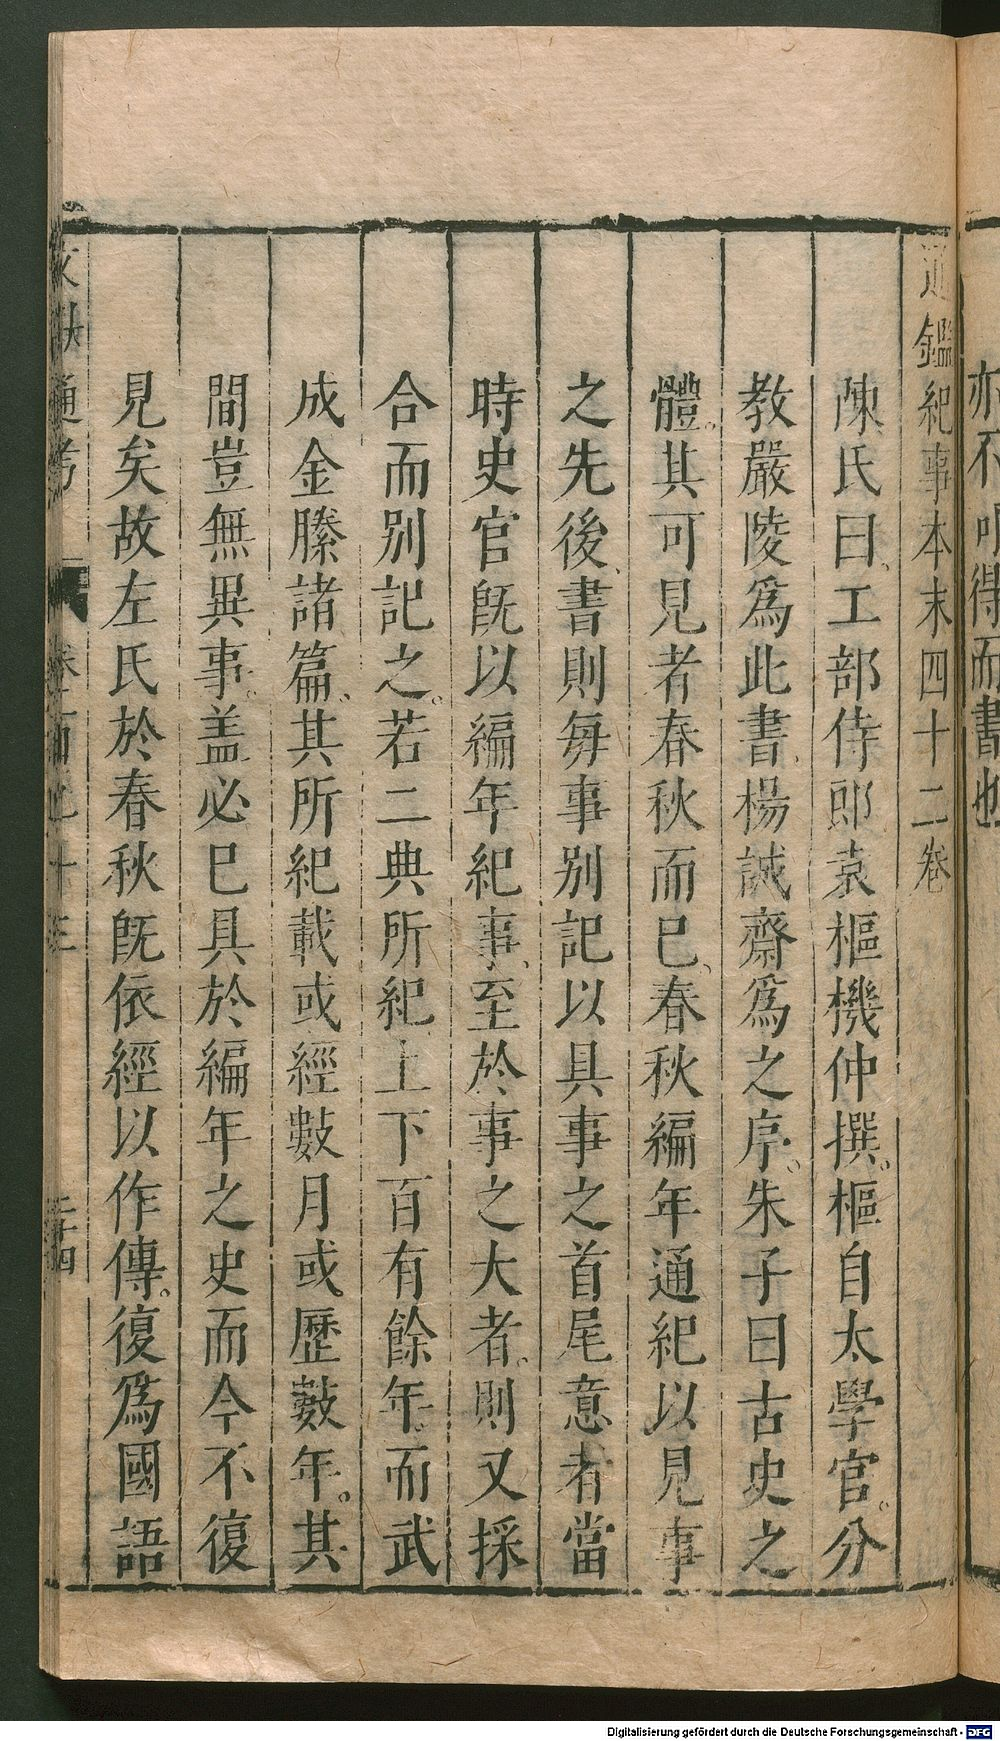 亦不可得而書也
通鑑紀事本末四十二卷
陳氏曰、工部侍郎袁樞機仲撰。樞自太學官。分
教嚴陵爲此書、楊誠齋爲之序。朱子曰古史之
體。其可見者春秋而已、春秋編年通紀以見事
之先後、書則每事別記以具事之首尾意者當
時史官旣以編年紀事、至於事之大者、則又採
合而别記之。若二典所紀上下百有餘年。而武
成金縢諸篇、其所紀載或經數月或歷數年。其
間豈無異事。盖必已具於編年之史而今不復
見矣故左氏於春秋旣依經以作傳。復爲國語
文獻通考 卷一百九十三 三十四
Digitalisierung gefördert durch die Deutsche Forschungsgemeinschaft - DFG